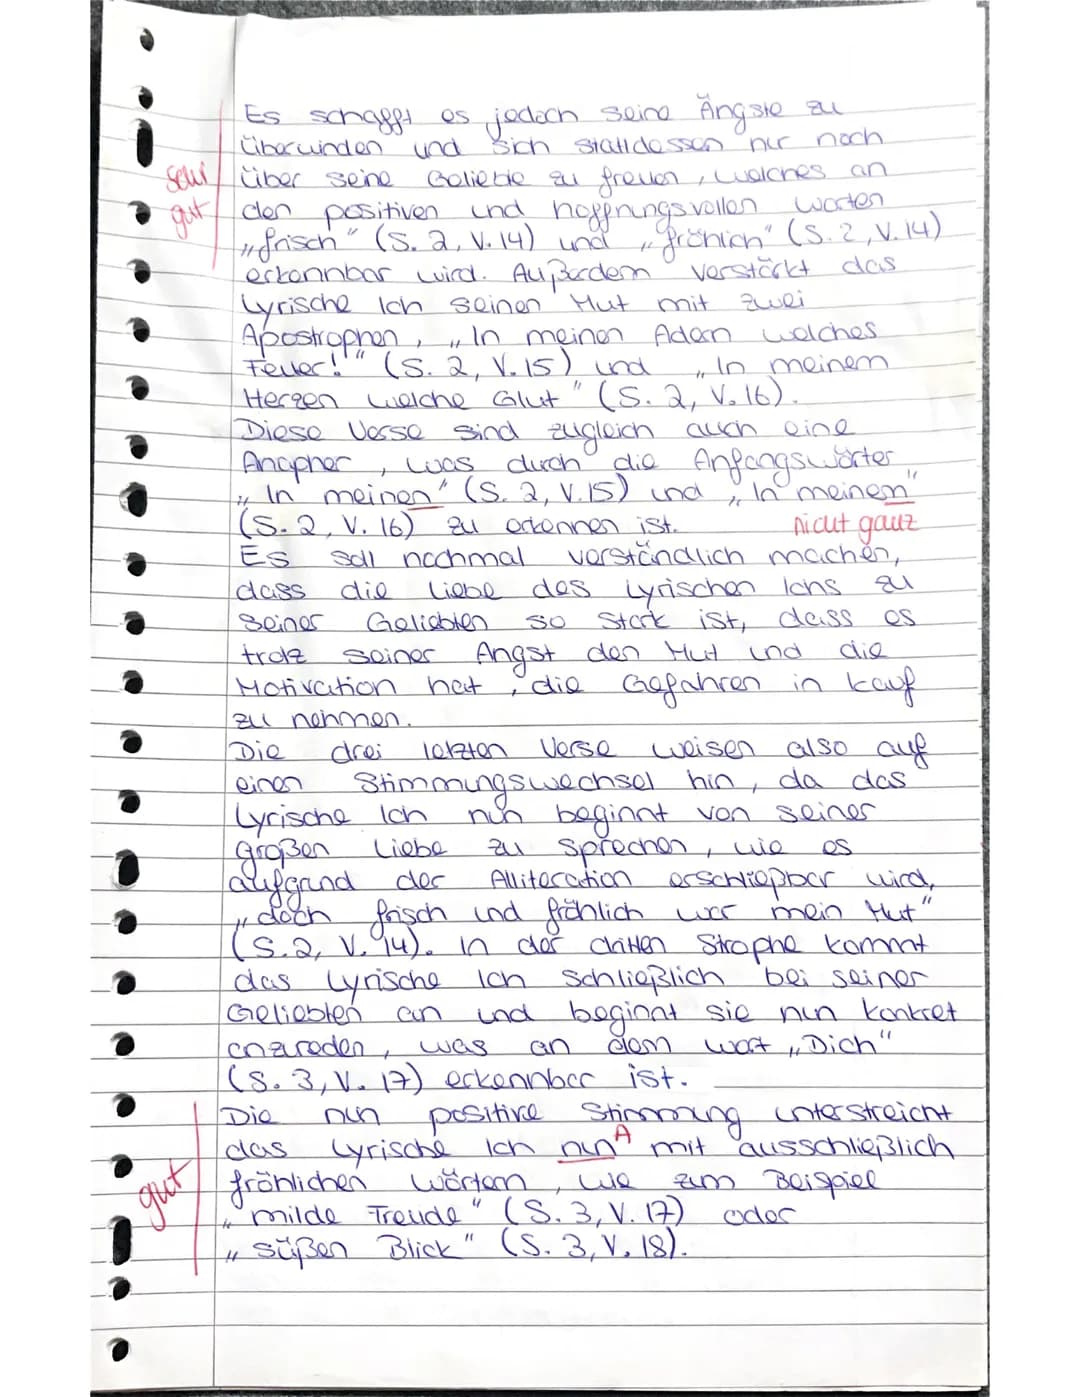 Es schafft es jedoch seine Ängste zu
überwinden und sich stattdessen nur noch
sehr
über seine Geliebte zu freuen, welches an
gut
den positiven und hoffnungsvollen Worten
„frisch" (S. 2, V. 14) und „fröhlich" (S. 2, V. 14)
erkennbar wird. Außerdem verstärkt das
Lyrische Ich seinen Mut mit zwei
Apostrophen, „In meinen Adern welches
Feuer!" (S. 2, V. 15) und „In meinem
Herzen welche Glut" (S. 2, V. 16).
Diese Verse sind zugleich auch eine
Anapher, was durch die Anfangswörter
„In meinen" (S. 2, V. 15) und „In meinem"
(S. 2, V. 16) zu erkennen ist.
nicht ganz
Es soll nochmal verständlich machen,
dass die Liebe des Lyrischen Ichs zu
seiner Geliebten so stark ist, dass es
trotz seiner Angst den Mut und die
Motivation hat, die Gefahren in kauf
zu nehmen.
Die drei letzten Verse weisen also auf
einen Stimmungswechsel hin, da das
Lyrische Ich nun beginnt von seiner
großen Liebe zu sprechen, wie es
aufgrund der Alliteration erschließbar wird,
„doch frisch und fröhlich war mein Mut"
(S. 2, V. 14). In der dritten Strophe kommt
das Lyrische Ich schließlich bei seiner
Geliebten an und beginnt sie nun konkret
anzureden, was an dem Wort „Dich"
(S. 3, V. 17) erkennbar ist.
Die nun positive Stimmung unterstreicht
A
das Lyrische Ich nun mit ausschließlich
fröhlichen Wörtern, wie zum Beispiel
gut
„milde Freude" (S. 3, V. 17) oder
„süßen Blick" (S. 3, V. 18).